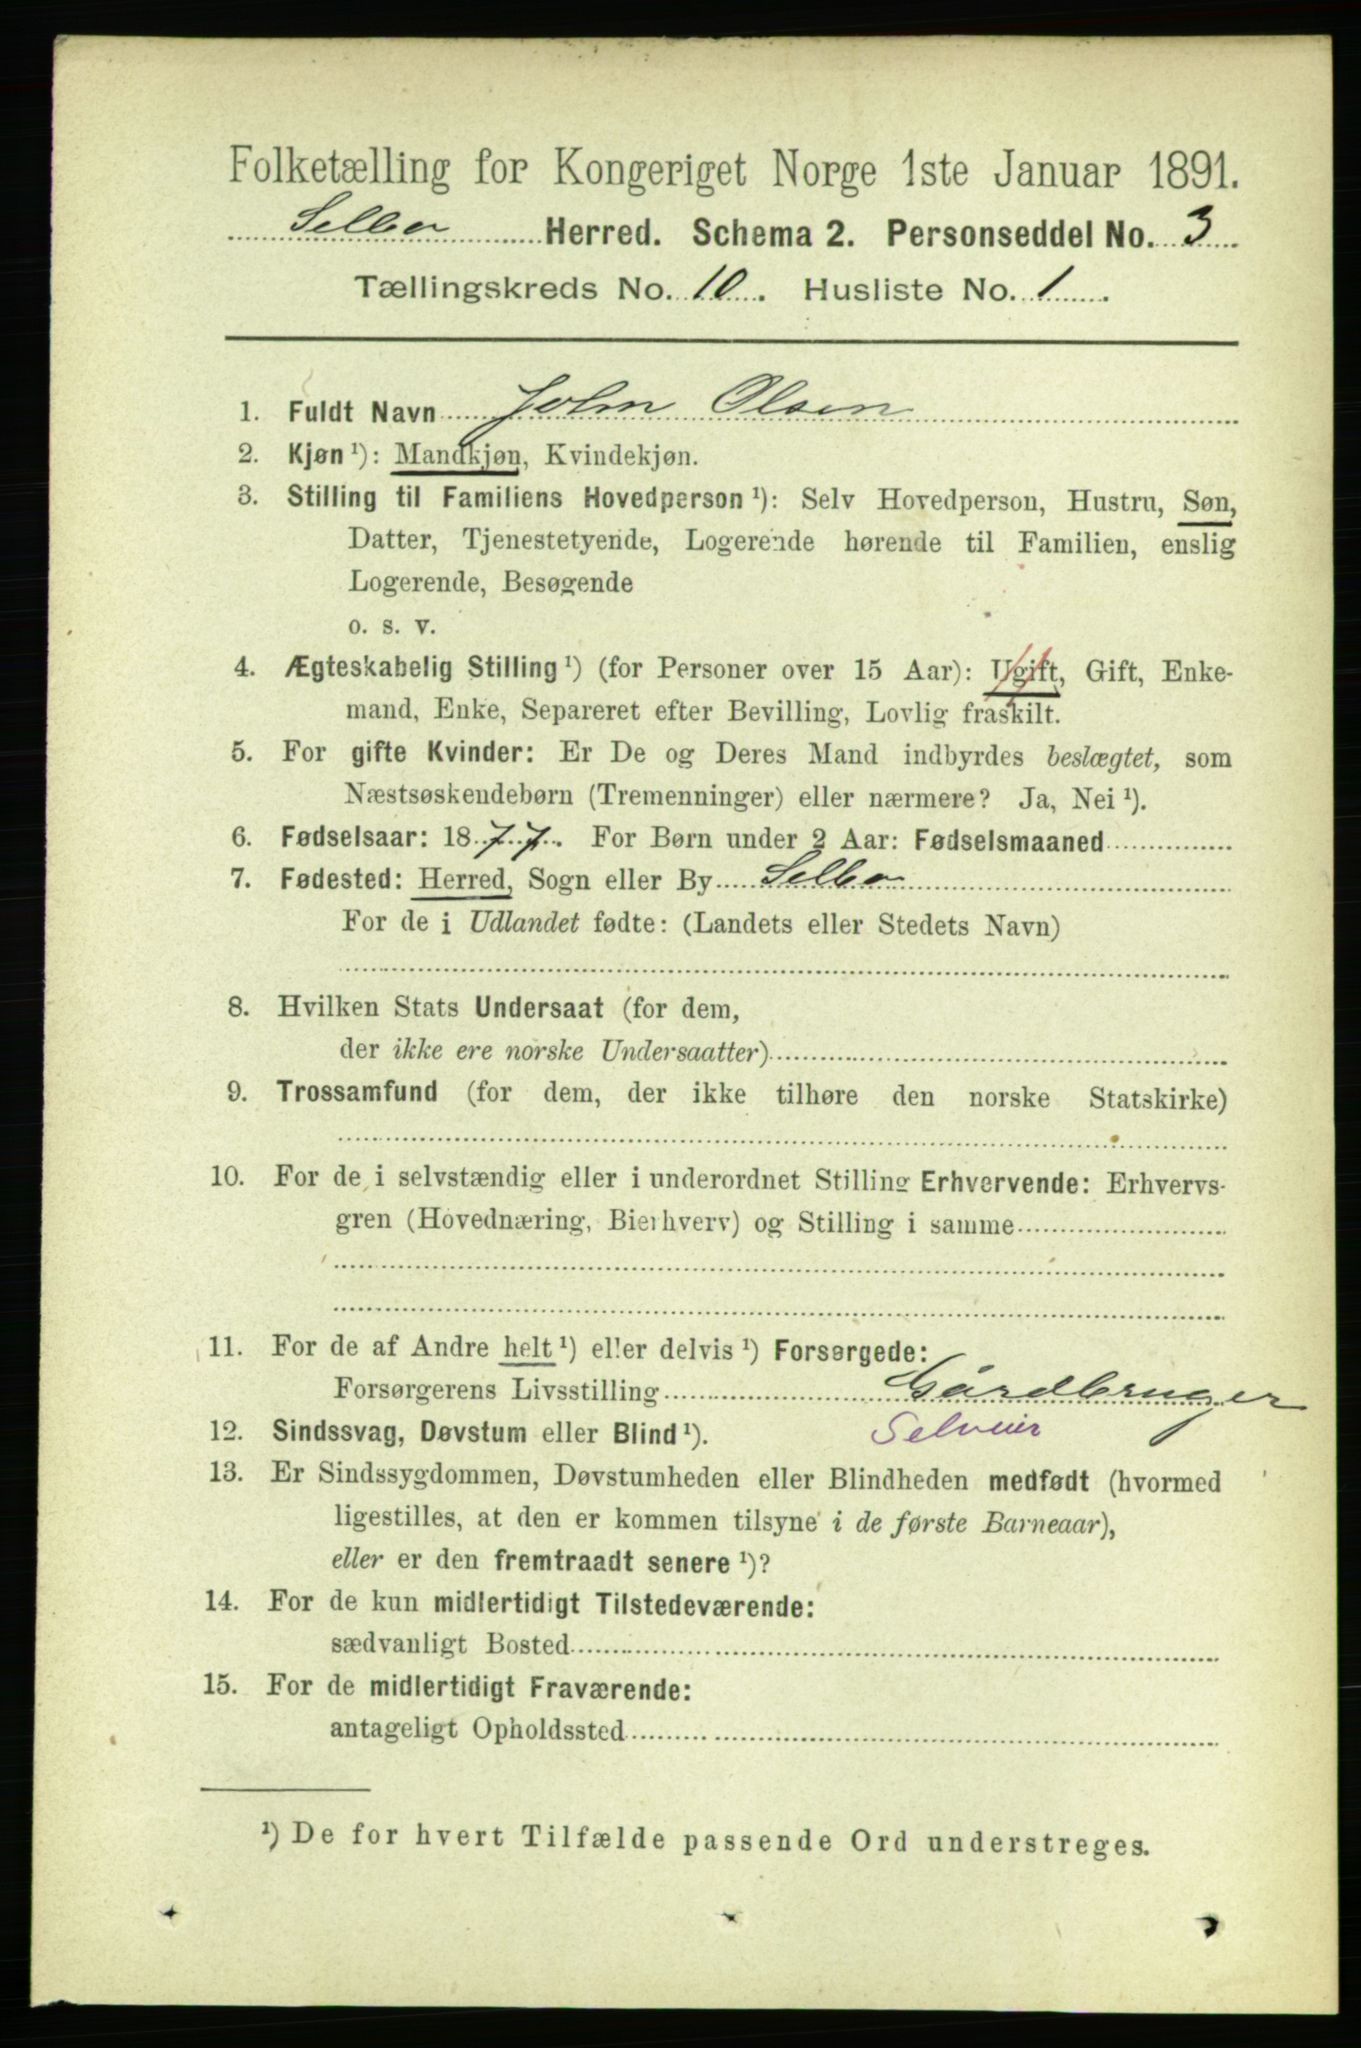 Folketælling for Kongeriget Norge 1ste Januar 1891.
Selbo Herred. Schema 2. Personseddel No. 3
Tællingskreds No. 10. Husliste No. 1
1. Fuldt Navn John Olsen
2. Kjøn ¹): Mandkjøn, Kvindekjøn.
3. Stilling til Familiens Hovedperson ¹): Selv Hovedperson, Hustru, Søn,
Datter, Tjenestetyende, Logerende hørende til Familien, enslig
Logerende, Besøgende
o. s. v.
4. Ægteskabelig Stilling ¹) (for Personer over 15 Aar): Ugift, Gift, Enke-
mand, Enke, Separeret efter Bevilling, Lovlig fraskilt.
5. For gifte Kvinder: Er De og Deres Mand indbyrdes beslægtet, som
Næstsøskendebørn (Tremenninger) eller nærmere? Ja, Nei ¹).
6. Fødselsaar: 1877. For Børn under 2 Aar: Fødselsmaaned
7. Fødested: Herred, Sogn eller By Selbo
For de i Udlandet fødte: (Landets eller Stedets Navn)
8. Hvilken Stats Undersaat (for dem,
der ikke ere norske Undersaatter)
9. Trossamfund (for dem, der ikke tilhøre den norske Statskirke)
10. For de i selvstændig eller i underordnet Stilling Erhvervende: Erhvervs-
gren (Hovednæring, Bierhverv) og Stilling i samme
11. For de af Andre helt ¹) eller delvis ¹) Forsørgede:
Forsørgerens Livsstilling Gårdbruger
Selveier
12. Sindssvag, Døvstum eller Blind ¹).
13. Er Sindssygdommen, Døvstumheden eller Blindheden medfødt (hvormed
ligestilles, at den er kommen tilsyne i de første Barneaar),
eller er den fremtraadt senere ¹)?
14. For de kun midlertidigt Tilstedeværende:
sædvanligt Bosted
15. For de midlertidigt Fraværende:
antageligt Opholdssted
¹) De for hvert Tilfælde passende Ord understreges.